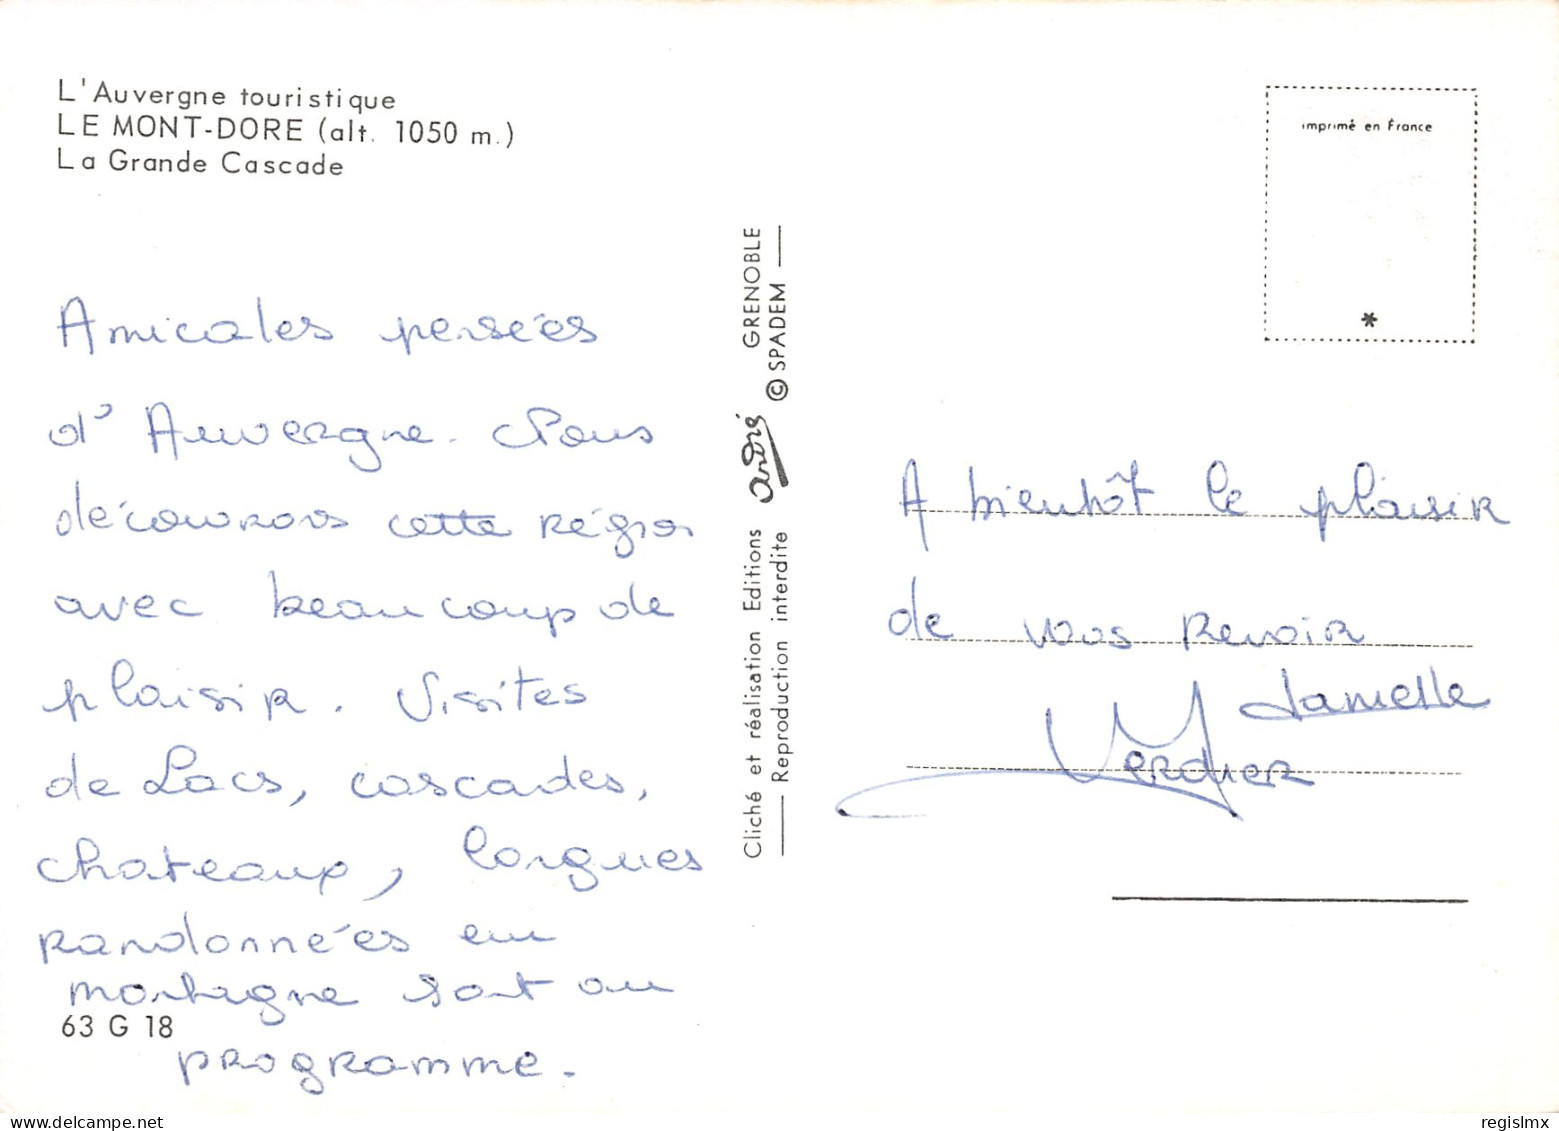 L'Auvergne touristique
LE MONT-DORE (alt. 1050 m.)
La Grande Cascade
Amicales pensées
d'Auvergne. Nous
découvrons cette région
avec beaucoup de
plaisir. Visites
de Lacs, cascades,
chateaux, longues
randonnées en
montagne sont au
programme.
63 G 18
Cliché et réalisation Editions André GRENOBLE
Reproduction interdite © SPADEM
imprimé en France
*
A bientôt le plaisir
de vous revoir
Danielle
Verdier
regislmx